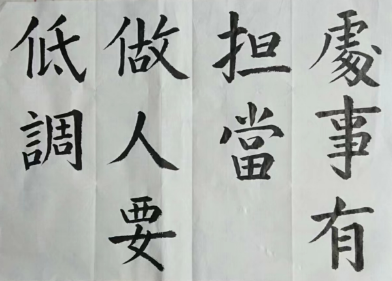 處事有
担當
做人要
低調